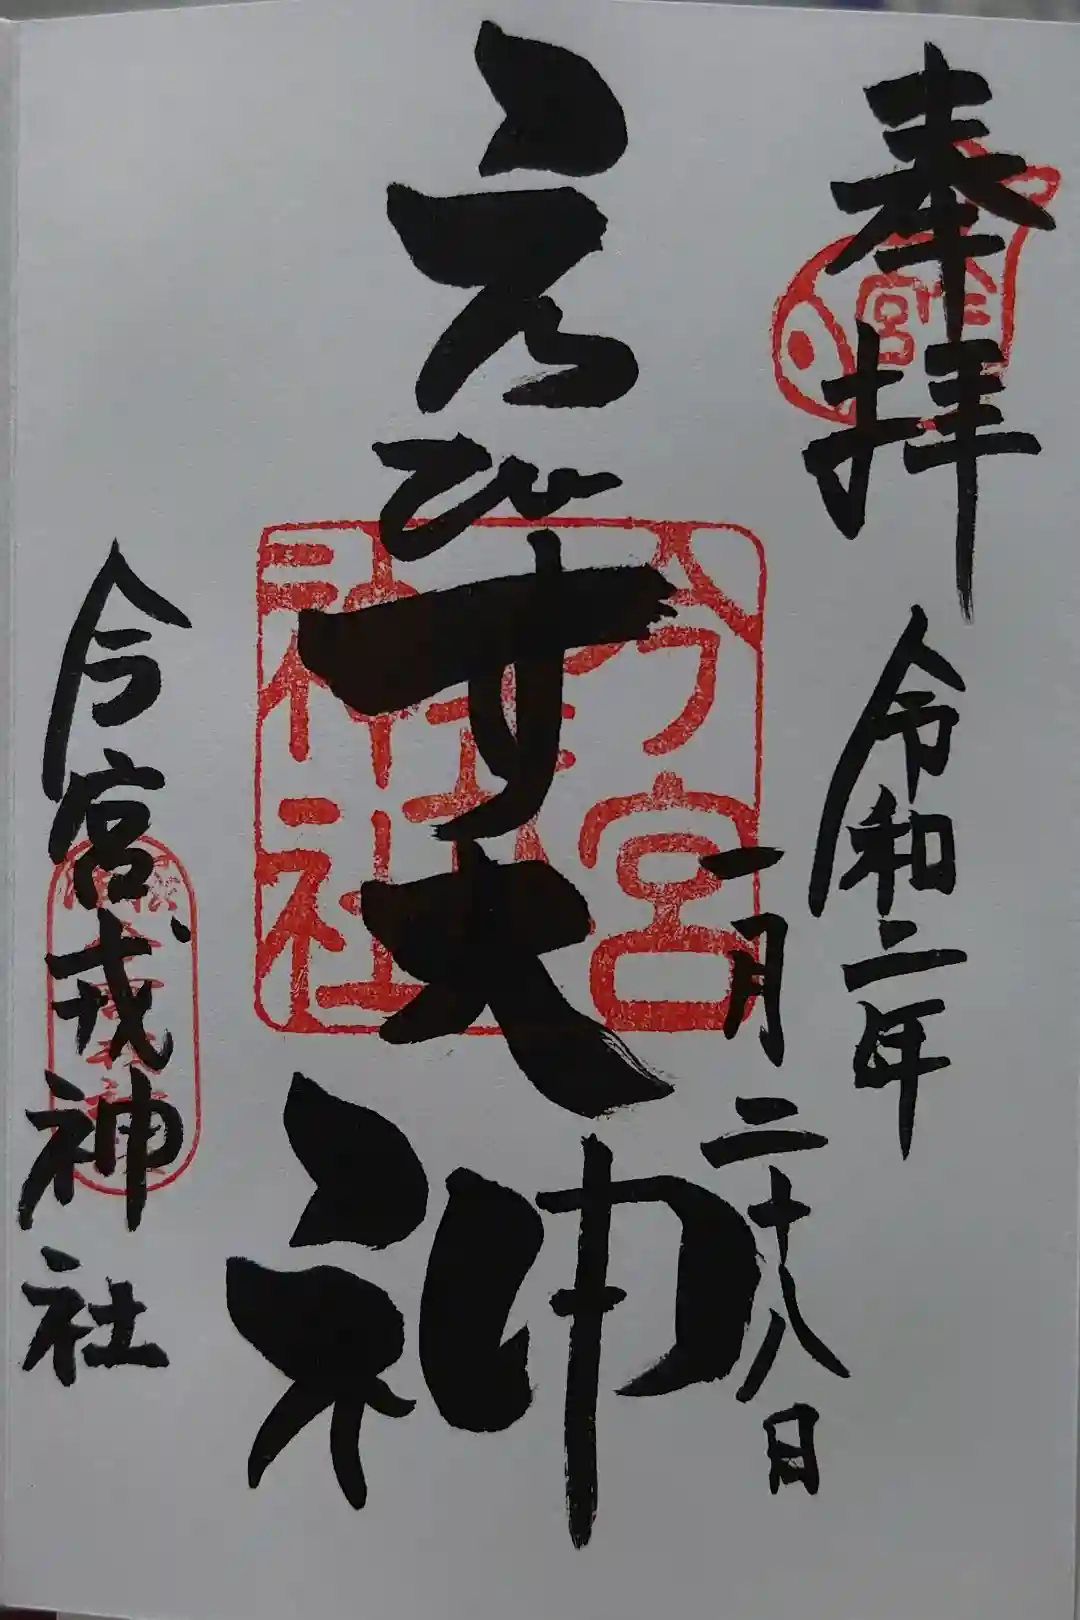 奉拝
令和二年
一月二十八日
えびす大神
今宮戎神社
今宮
今宮戎神社